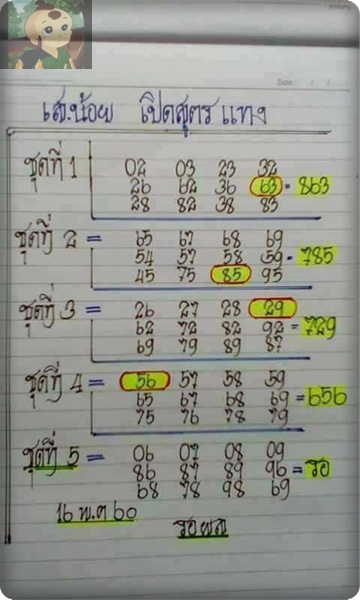 Date
เสน้อย เปิดสูตร แทง
ชุดที่ 1 02 03 23 32
26 62 36 63 = 863
28 82 38 83
ชุดที่ 2 = 65 67 68 69
54 57 58 59 = 785
45 75 85 95
ชุดที่ 3 = 26 27 28 29
62 72 82 92 = 729
69 79 89 87
ชุดที่ 4 = 56 57 58 59
65 67 68 69 = 656
75 76 78 79
ชุดที่ 5 = 06 07 08 09
86 87 89 96 = รอ
68 78 98 69
16 พ.ค 60
รอผล